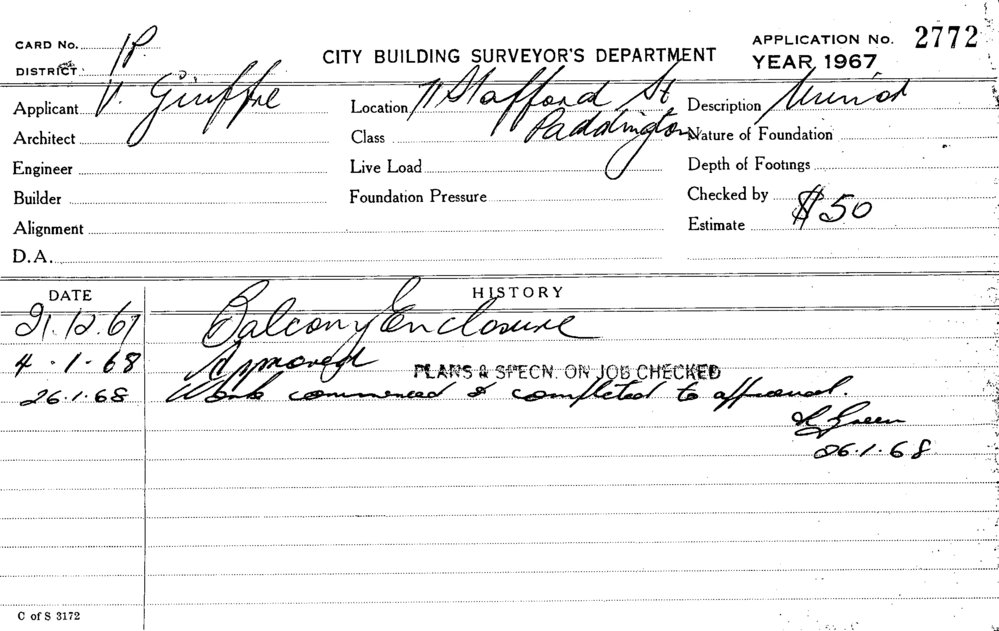 CARD No. 1P
CITY BUILDING SURVEYOR'S DEPARTMENT
APPLICATION No. 2772
DISTRICT
YEAR 1967
Applicant V. Giuffre
Location 71 Stafford St Paddington
Description Minor
Architect
Class
Nature of Foundation
Engineer
Live Load
Depth of Footings
Builder
Foundation Pressure
Checked by
Alignment
Estimate $50
D.A.
DATE HISTORY
21.12.67 Balcony Enclosure
4.1.68 Approved PLANS & SPECN. ON JOB CHECKED
26.1.68 Work commenced & completed to approval.
Green
26.1.68
C of S 3172